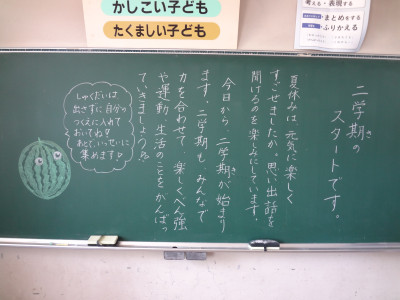 かしこい子ども
たくましい子ども
考える・表現する
まとめをする
ふりかえる
二学期の
スタートです。
夏休みは、元気に楽しく
すごせましたか。思い出話を
聞けるのを楽しみにしています。
今日から、二学期が始まり
ます。二学期も、みんなで
力を合わせて、楽しくべん強
や運動、生活のことをがんばっ
ていきましょう。
しゅくだいは
出さずに自分の
つくえに入れて
おいてね?
あとで、いっせいに
集めます♡